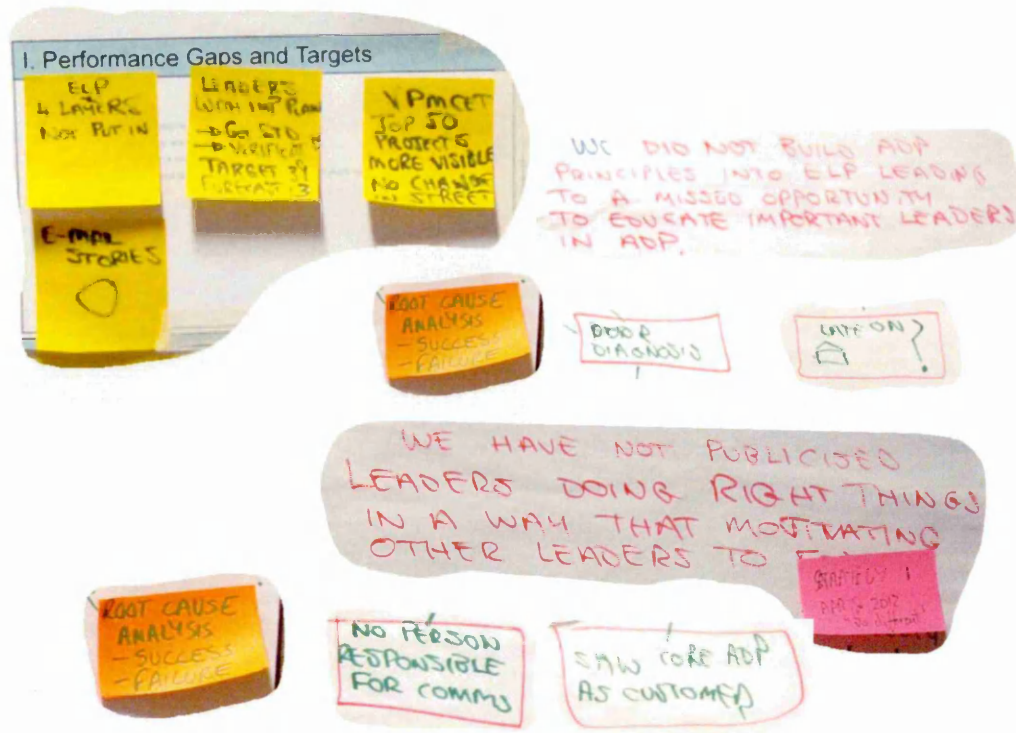 I. Performance Gaps and Targets
ELP
4 LAYERS
NOT PUT IN
LEADERS
WITH IMP PLAN
→ Get STD
→ VERIFIED
TARGET
FORECAST : 3
E-MAIL
STORIES
TOP 50
PROJECTS
MORE VISIBLE
NO CHANGE
IN STREET
WE DID NOT BUILD ADP
PRINCIPLES INTO ELP LEADING
TO A MISSED OPPORTUNITY
TO EDUCATE IMPORTANT LEADERS
IN ADP.
ROOT CAUSE
ANALYSIS
- SUCCESS
- FAILURE
POOR
DIAGNOSIS
LATE ON
?
WE HAVE NOT PUBLICISED
LEADERS DOING RIGHT THINGS
IN A WAY THAT MOTIVATING
OTHER LEADERS TO
STRATEGY 1
2012
ROOT CAUSE
ANALYSIS
- SUCCESS
- FAILURE
NO PERSON
RESPONSIBLE
FOR COMMS
SAW CORE ADP
AS CUSTOMER